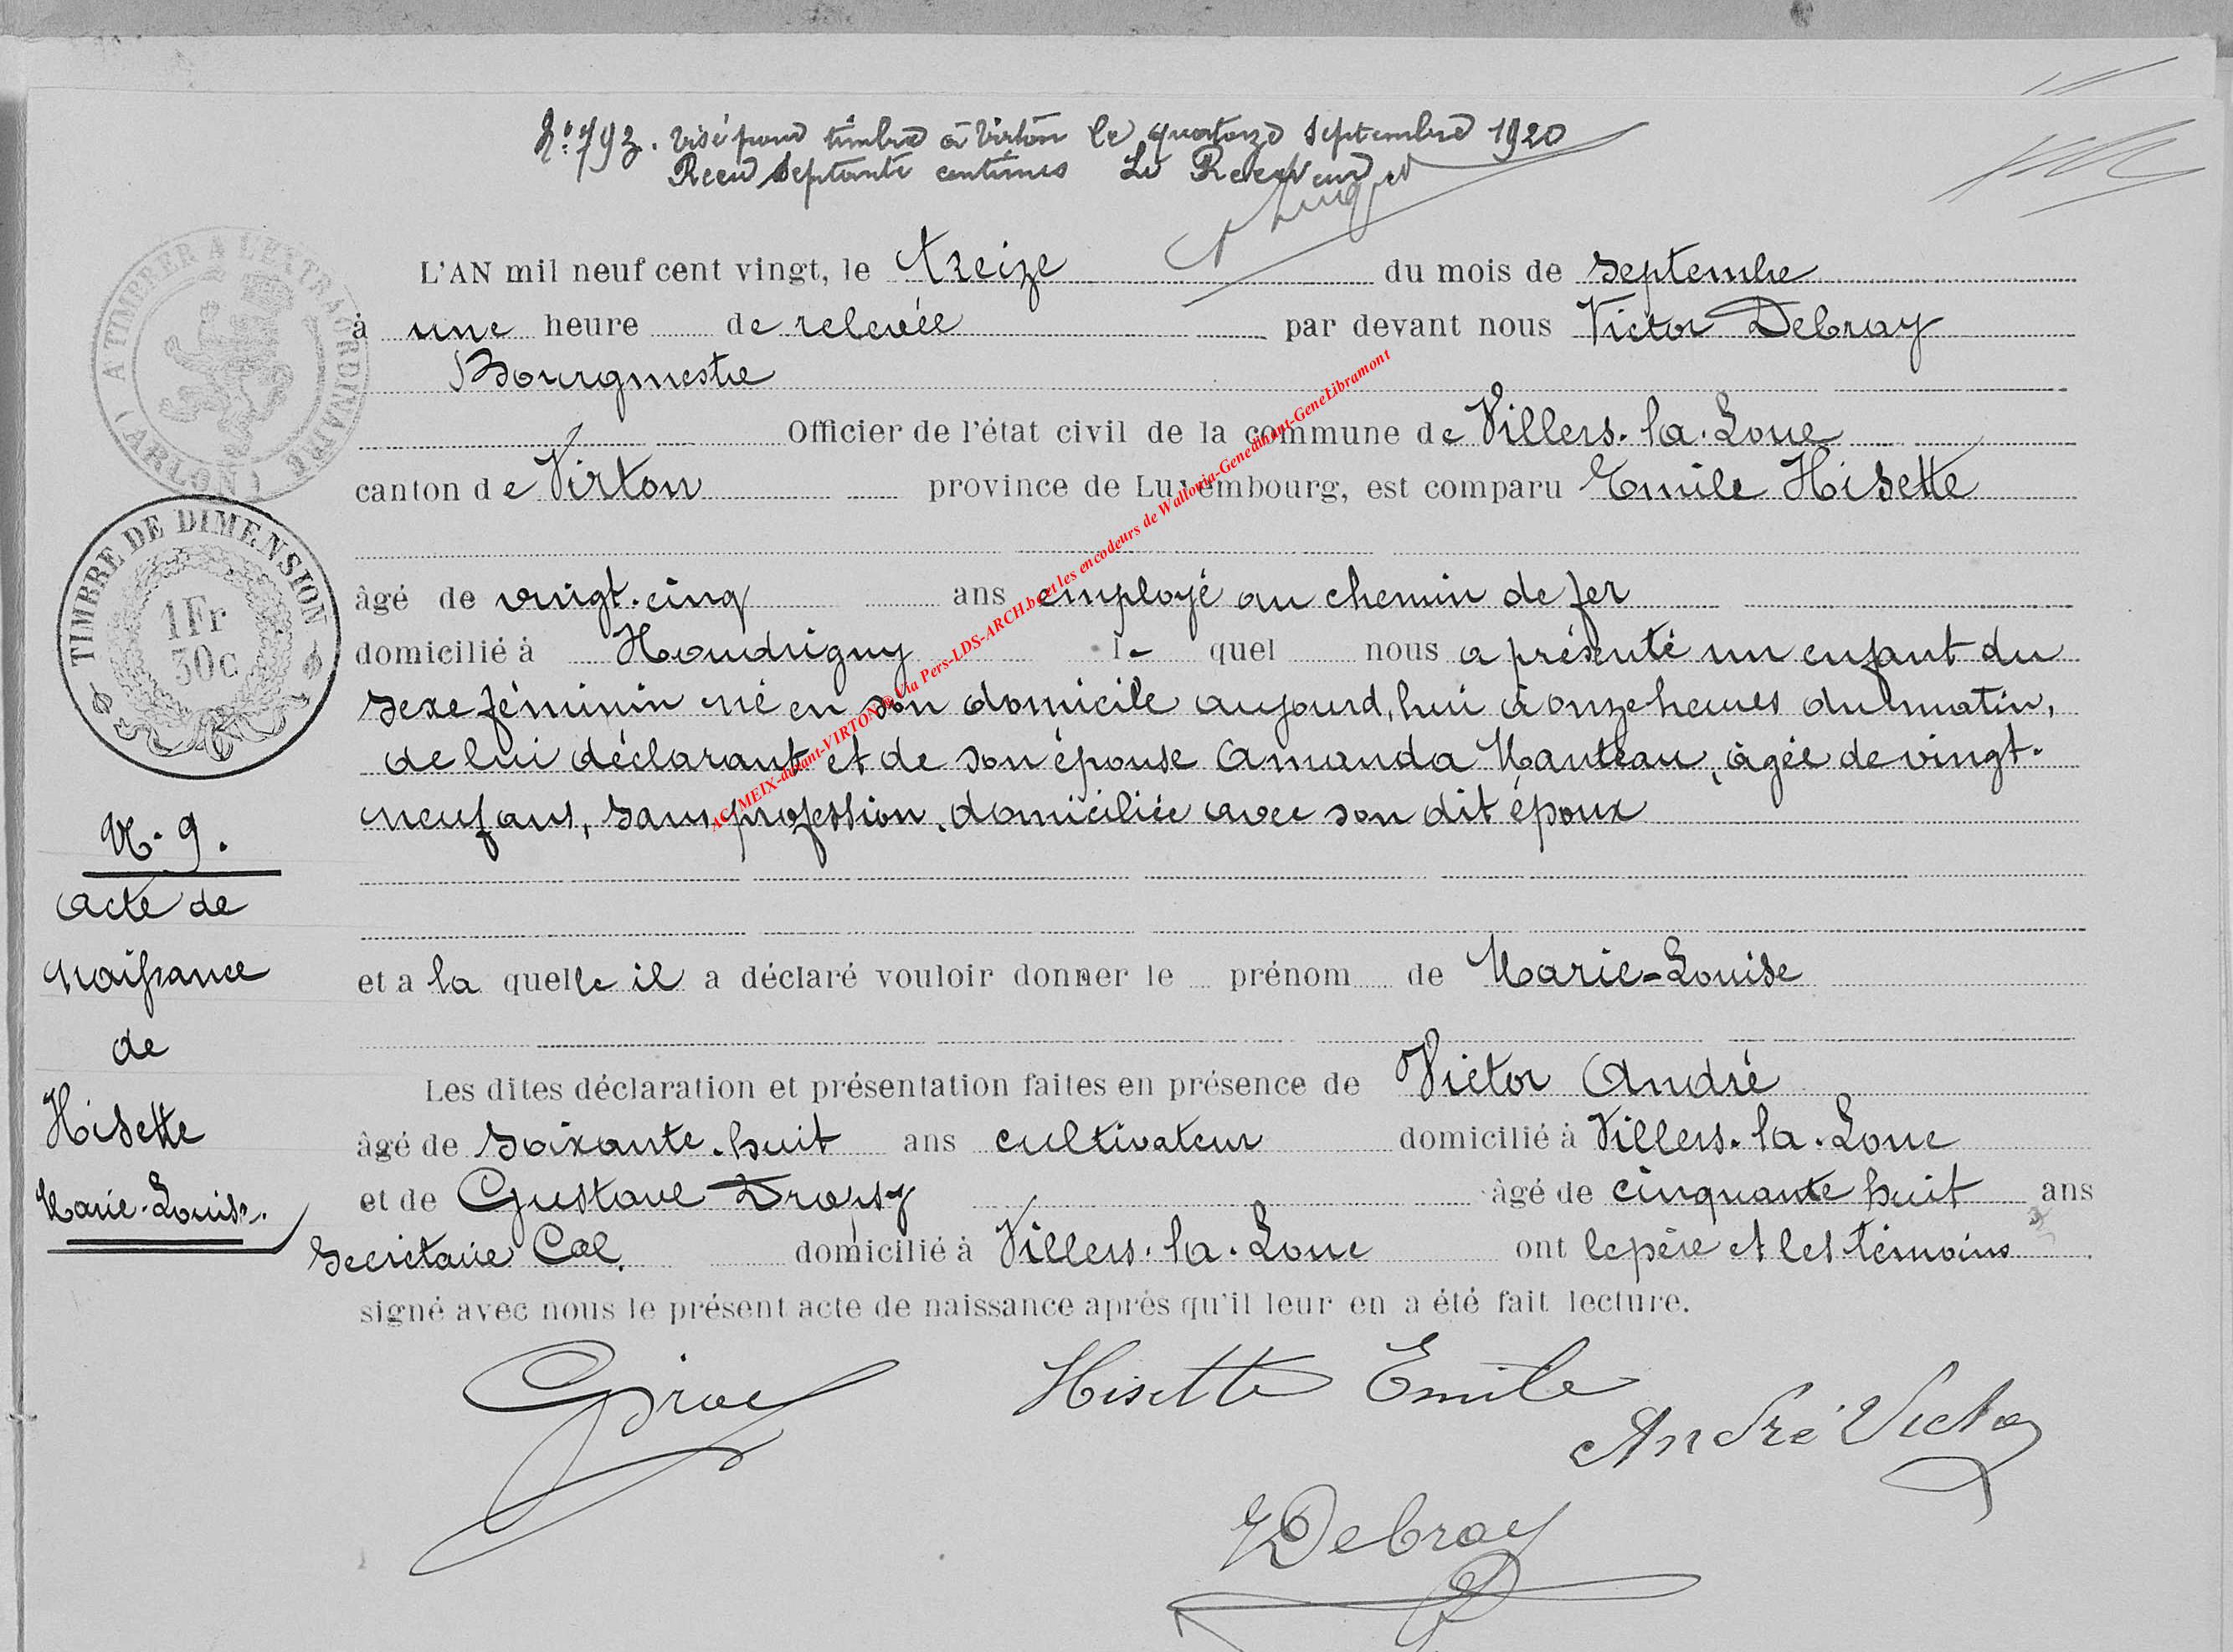 N° 793. visé pour timbre à Virton le quatorze septembre 1920
Recu septante centimes Le Receveur
A TIMBRER A L'EXTRAORDINAIRE (ARLON)
L'AN mil neuf cent vingt, le treize du mois de septembre
à une heure de relevée par devant nous Victor Debray
Bourgmestre
Officier de l'état civil de la commune de Villers-la-Loue
canton de Virton province de Luxembourg, est comparu Emile Hisette
TIMBRE DE DIMENSION
1 Fr
30c
âgé de vingt-cinq ans employé au chemin de fer
domicilié à Houdrigny le quel nous a présenté un enfant du
sexe féminin né en son domicile aujourd'hui à onze heures du matin,
de lui déclarant et de son épouse Amanda Manteau, âgée de vingt-
neuf ans, sans profession, domiciliée avec son dit époux
N. 9.
Acte de
naissance
de
Hisette
Marie-Louise.
et a la quelle il a déclaré vouloir donner le prénom de Marie-Louise
Les dites déclaration et présentation faites en présence de Victor André
âgé de soixante-huit ans cultivateur domicilié à Villers-la-Loue
et de Gustave Dropsy âgé de cinquante huit ans
Secrétaire Cal. domicilié à Villers-la-Loue ont le père et les témoins
signé avec nous le présent acte de naissance après qu'il leur en a été fait lecture.
Hisette Emile
André Victor
VDebray
AC MEIX-devant-VIRTON® Via Pers-LDS-ARCH.be et les encodeurs de Wallonia-Genedinant-GeneLibramont